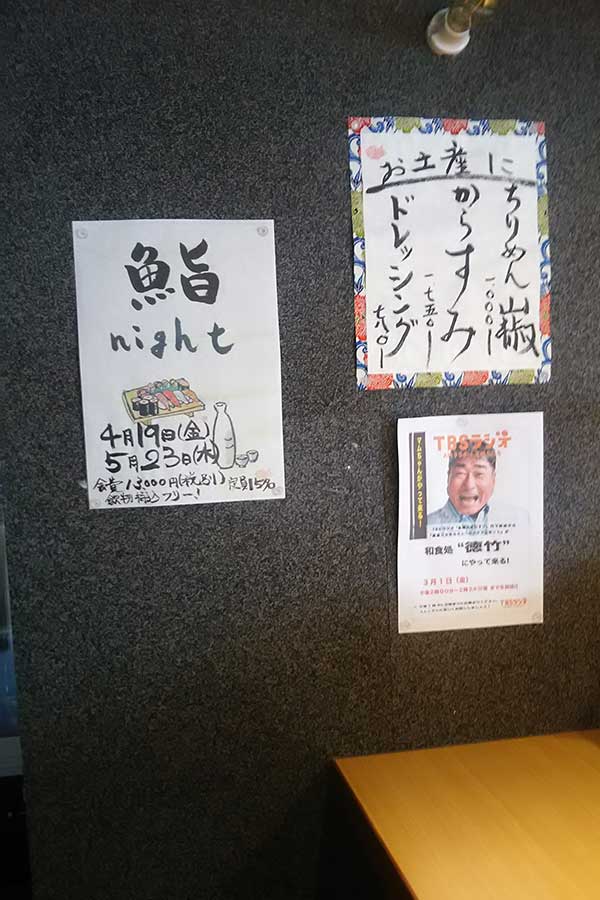 鮨
night
4月19日(金)
5月23日(木)
会費13000円(税別)
飲物持込フリー!
定員15名
お土産に
ちりめん山椒
一、〇〇〇ー
からすみ
一七五〇ー
ドレッシング
七八〇ー
TBSラジオ
マムちゃんがやって来る!
和食処 "徳竹"
にやって来る!
3月1日(金)
TBSラジオ